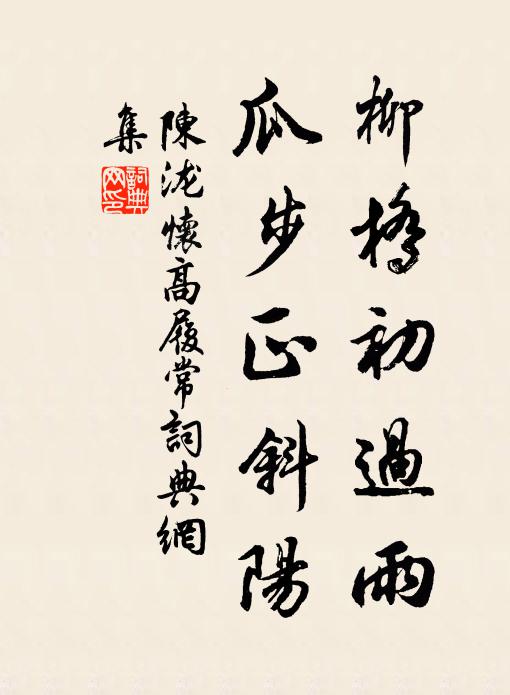 柳橋初過雨
瓜步正斜陽
陳浤懷高履常詞典網
集
詞典網印